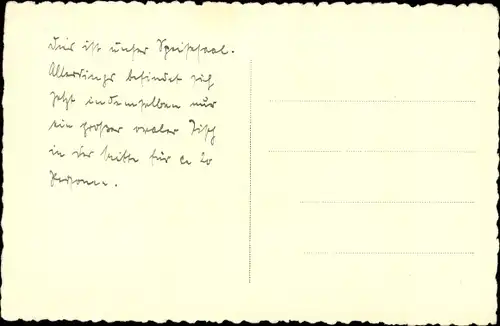 Dies ist unser Speisesaal.
Allerdings befindet sich
jetzt in demselben nur
ein großer ovaler Tisch
in der Mitte für ca 20
Personen.